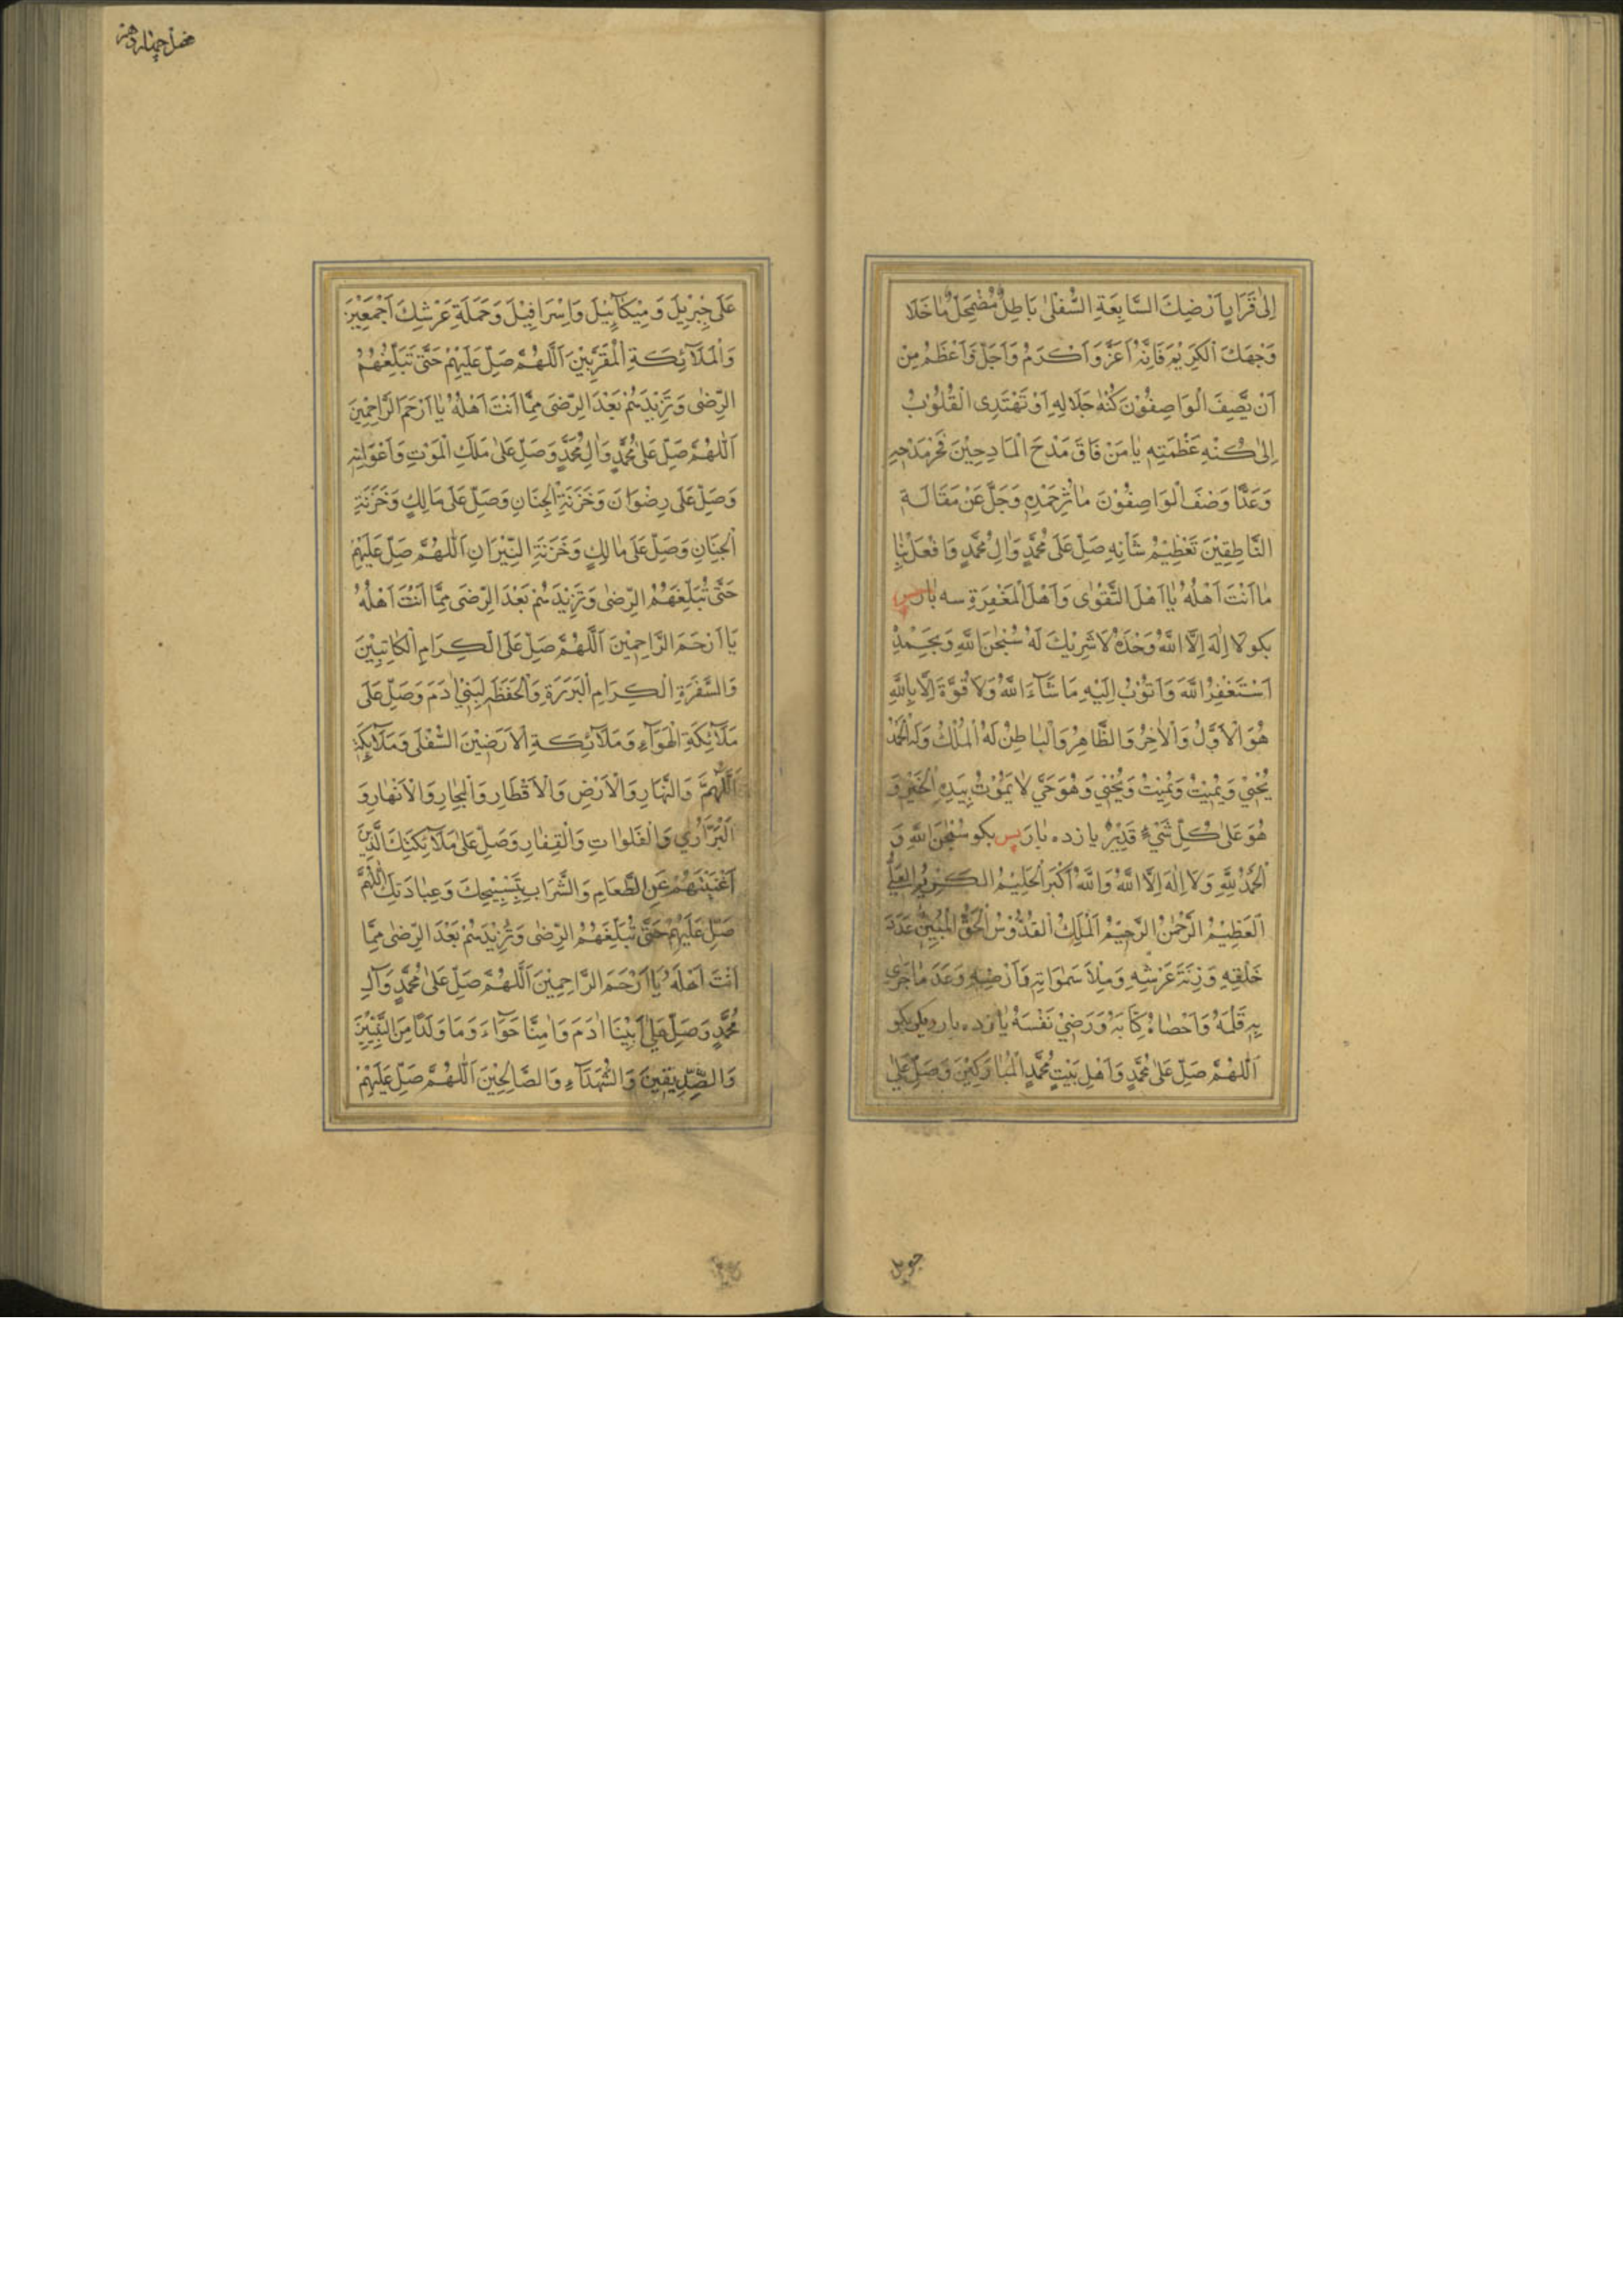 اِلىٰ قَرَارِ اَرْضِكَ السَّابِعَةِ السُّفْلىٰ بَاطِلٌ مُضْمَحِلٌّ مٰا خَلَا
وَجْهَكَ الْكَرِيْمَ فَاِنَّهُ اَعَزُّ وَاَكْرَمُ وَاَجَلُّ وَاَعْظَمُ مِنْ
اَنْ يَّصِفَ الْوَاصِفُوْنَ كُنْهَ جَلَالِهِ اَوْ تَهْتَدِى الْقُلُوْبُ
اِلىٰ كُنْهِ عَظَمَتِهِ يٰا مَنْ فَاقَ مَدْحَ الْمَادِحِيْنَ فَخْرُ مَدْحِهِ
وَعَدَا وَصْفَ الْوَاصِفُوْنَ مٰاثِرُ حَمْدِهِ وَجَلَّ عَنْ مَقَالَةِ
النَّاطِقِيْنَ تَعْظِيْمُ شَأْنِهِ صَلِّ عَلىٰ مُحَمَّدٍ وَاٰلِ مُحَمَّدٍ وَافْعَلْ بِنَا
مٰا اَنْتَ اَهْلُهُ يٰا اَهْلَ التَّقْوٰى وَاَهْلَ الْمَغْفِرَةِ سه بٰار پس
بكو لا اِلٰهَ اِلَّا اللّٰهُ وَحْدَهُ لَا شَرِيْكَ لَهُ سُبْحٰنَ اللّٰهِ وَبِحَمْدِهِ
اَسْتَغْفِرُ اللّٰهَ وَاَتُوْبُ اِلَيْهِ مَا شَآءَ اللّٰهُ وَلَا قُوَّةَ اِلَّا بِاللّٰهِ
هُوَ الْاَوَّلُ وَالْاٰخِرُ وَالظَّاهِرُ وَالْبٰاطِنُ لَهُ الْمُلْكُ وَلَهُ الْحَمْدُ
يُحْيِيْ وَيُمِيْتُ وَيُمِيْتُ وَيُحْيِيْ وَهُوَ حَيٌّ لَا يَمُوْتُ بِيَدِهِ الْخَيْرُ وَ
هُوَ عَلىٰ كُلِّ شَيْءٍ قَدِيْرٌ يا زده بٰار پس بكو سُبْحٰنَ اللّٰهِ وَ
الْحَمْدُ لِلّٰهِ وَلَا اِلٰهَ اِلَّا اللّٰهُ وَاللّٰهُ اَكْبَرُ الْحَلِيْمُ الْكَرِيْمُ الْعَلِيُّ
الْعَظِيْمُ الرَّحْمٰنُ الرَّحِيْمُ الْمَلِكُ الْقُدُّوْسُ الْحَقُّ الْمُبِيْنُ عَدَدَ
خَلْقِهِ وَزِنَةَ عَرْشِهِ وَمِلْاَ سَمٰوَاتِهِ وَاَرْضِيْهِ وَعَدَدَ مٰا جَرٰى
بِهِ قَلَمُهُ وَاَحْصٰاهُ كِتَابُهُ وَرَضِيَ نَفْسَهُ يازده بار ويكي بكو
اَللّٰهُمَّ صَلِّ عَلىٰ مُحَمَّدٍ وَاَهْلِ بَيْتِ مُحَمَّدٍ الْمُبٰارَكِيْنَ وَصَلِّ عَلىٰ
عَلىٰ جِبْرِيْلَ وَمِيْكَآئِيْلَ وَاِسْرَافِيْلَ وَحَمَلَةِ عَرْشِكَ اَجْمَعِيْنَ
وَالْمَلَآئِكَةِ الْمُقَرَّبِيْنَ اَللّٰهُمَّ صَلِّ عَلَيْهِمْ حَتّٰى تُبَلِّغَهُمُ
الرِّضٰى وَتَزِيْدَهُمْ بَعْدَ الرِّضٰى مِمَّا اَنْتَ اَهْلُهُ يٰا اَرْحَمَ الرَّاحِمِيْنَ
اَللّٰهُمَّ صَلِّ عَلىٰ مُحَمَّدٍ وَاٰلِ مُحَمَّدٍ وَصَلِّ عَلىٰ مَلَكِ الْمَوْتِ وَاَعْوَانِهِ
وَصَلِّ عَلىٰ رِضْوَانَ وَخَزَنَةِ الْجِنَانِ وَصَلِّ عَلىٰ مَالِكٍ وَخَزَنَةِ
الْجِنَانِ وَصَلِّ عَلىٰ مٰالِكٍ وَخَزَنَةِ النِّيْرَانِ اَللّٰهُمَّ صَلِّ عَلَيْهِمْ
حَتّٰى تُبَلِّغَهُمُ الرِّضٰى وَتَزِيْدَهُمْ بَعْدَ الرِّضٰى مِمَّا اَنْتَ اَهْلُهُ
يٰا اَرْحَمَ الرَّاحِمِيْنَ اَللّٰهُمَّ صَلِّ عَلَى الْكِرَامِ الْكَاتِبِيْنَ
وَالسَّفَرَةِ الْكِرَامِ الْبَرَرَةِ وَالْحَفَظَةِ لِبَنِيْ اٰدَمَ وَصَلِّ عَلىٰ
مَلَآئِكَةِ الْهَوَآءِ وَمَلَآئِكَةِ الْاَرَضِيْنَ السُّفْلىٰ وَمَلَآئِكَةِ
وَالنَّهَارِ وَالْاَرْضِ وَالْاَقْطَارِ وَالْبِحَارِ وَالْاَنْهَارِ وَ
الْبَرَارِيْ وَالْفَلَوَاتِ وَالْقِفَارِ وَصَلِّ عَلىٰ مَلَآئِكَتِكَ الَّذِيْنَ
اَغْنَيْتَهُمْ عَنِ الطَّعَامِ وَالشَّرَابِ بِتَسْبِيْحِكَ وَعِبَادَتِكَ اَللّٰهُمَّ
صَلِّ عَلَيْهِمْ حَتّٰى تُبَلِّغَهُمُ الرِّضٰى وَتَزِيْدَهُمْ بَعْدَ الرِّضٰى مِمَّا
اَنْتَ اَهْلُهُ يٰا اَرْحَمَ الرَّاحِمِيْنَ اَللّٰهُمَّ صَلِّ عَلىٰ مُحَمَّدٍ وَاٰلِ
مُحَمَّدٍ وَصَلِّ عَلىٰ اَبِيْنَا اٰدَمَ وَاُمِّنَا حَوَّآءَ وَمَا وَلَدَا مِنَ النَّبِيِّيْنَ
وَالصِّدِّيْقِيْنَ وَالشُّهَدَآءِ وَالصَّالِحِيْنَ اَللّٰهُمَّ صَلِّ عَلَيْهِمْ